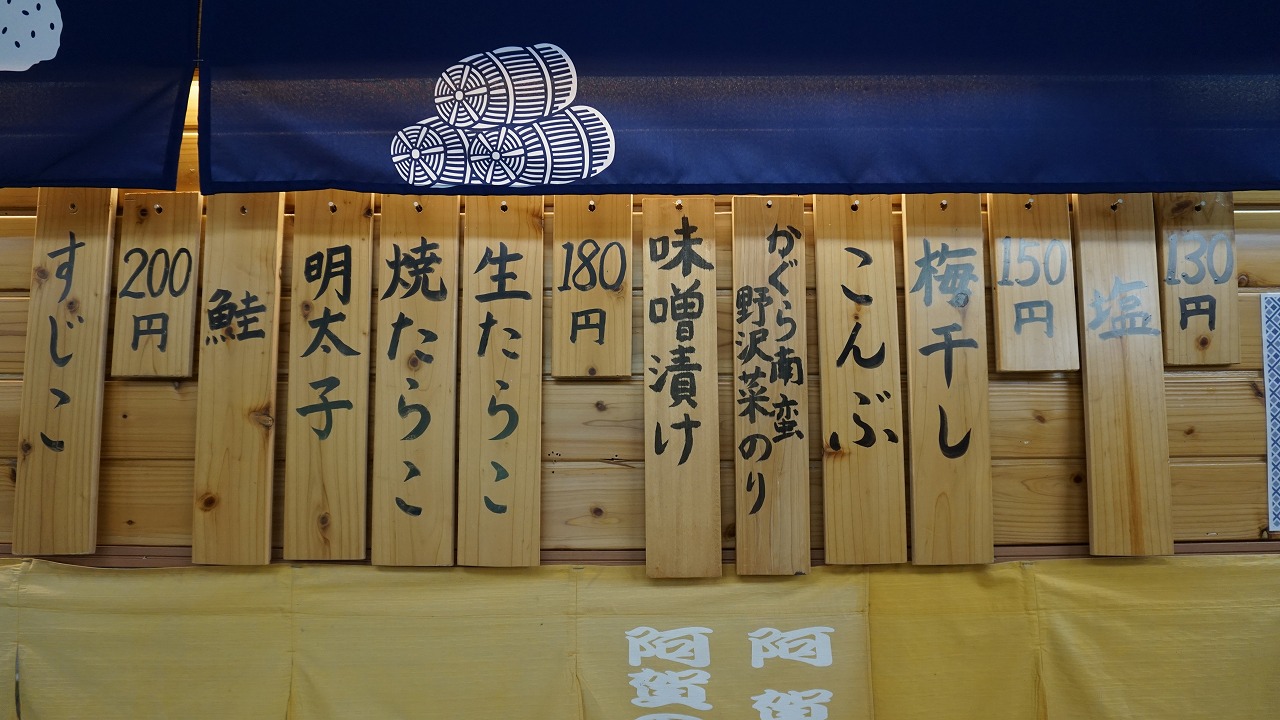 130円
塩
150円
梅干し
こんぶ
かぐら南蛮
野沢菜のり
味噌漬け
180円
生たらこ
焼たらこ
明太子
鮭
200円
すじこ
阿賀
阿賀